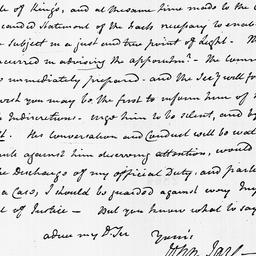 of Kings, and at the same time made to the C
candid Statement of the Facts necessary to enab
subject in a just and true point of Light. Th
concurred in advising the appointmt. The Comm
immediately prepared. and the Secy will fo
you may be the first to inform him of
Indiscretions. urge him to be silent, and by
His Conversation and Conduct will be wat
against him deserving attention, would
Discharge of my official Duty. and part
a Case, I should be guarded against every Im
of Justice — But you know what to say
adieu my D. Sir Yours
John Jay